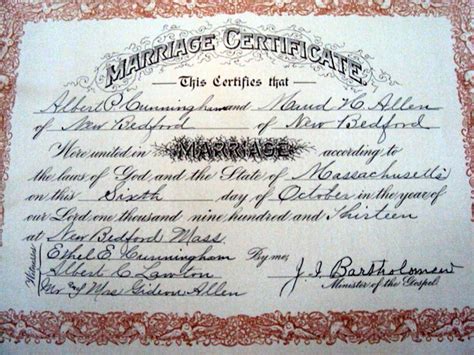 MARRIAGE CERTIFICATE
This Certifies that
Albert P. Cunningham and Maud H. Allen
of New Bedford of New Bedford
Were united in MARRIAGE according to
the laws of God and the State of Massachusetts
on this Sixth day of October in the year of
our Lord one thousand nine hundred and Thirteen
at New Bedford Mass.
Witnesses
Ethel E. Cunningham By me,
Albert C. Lawton J. I. Bartholomew
Mr & Mrs Gideon Allen Minister of the Gospel.